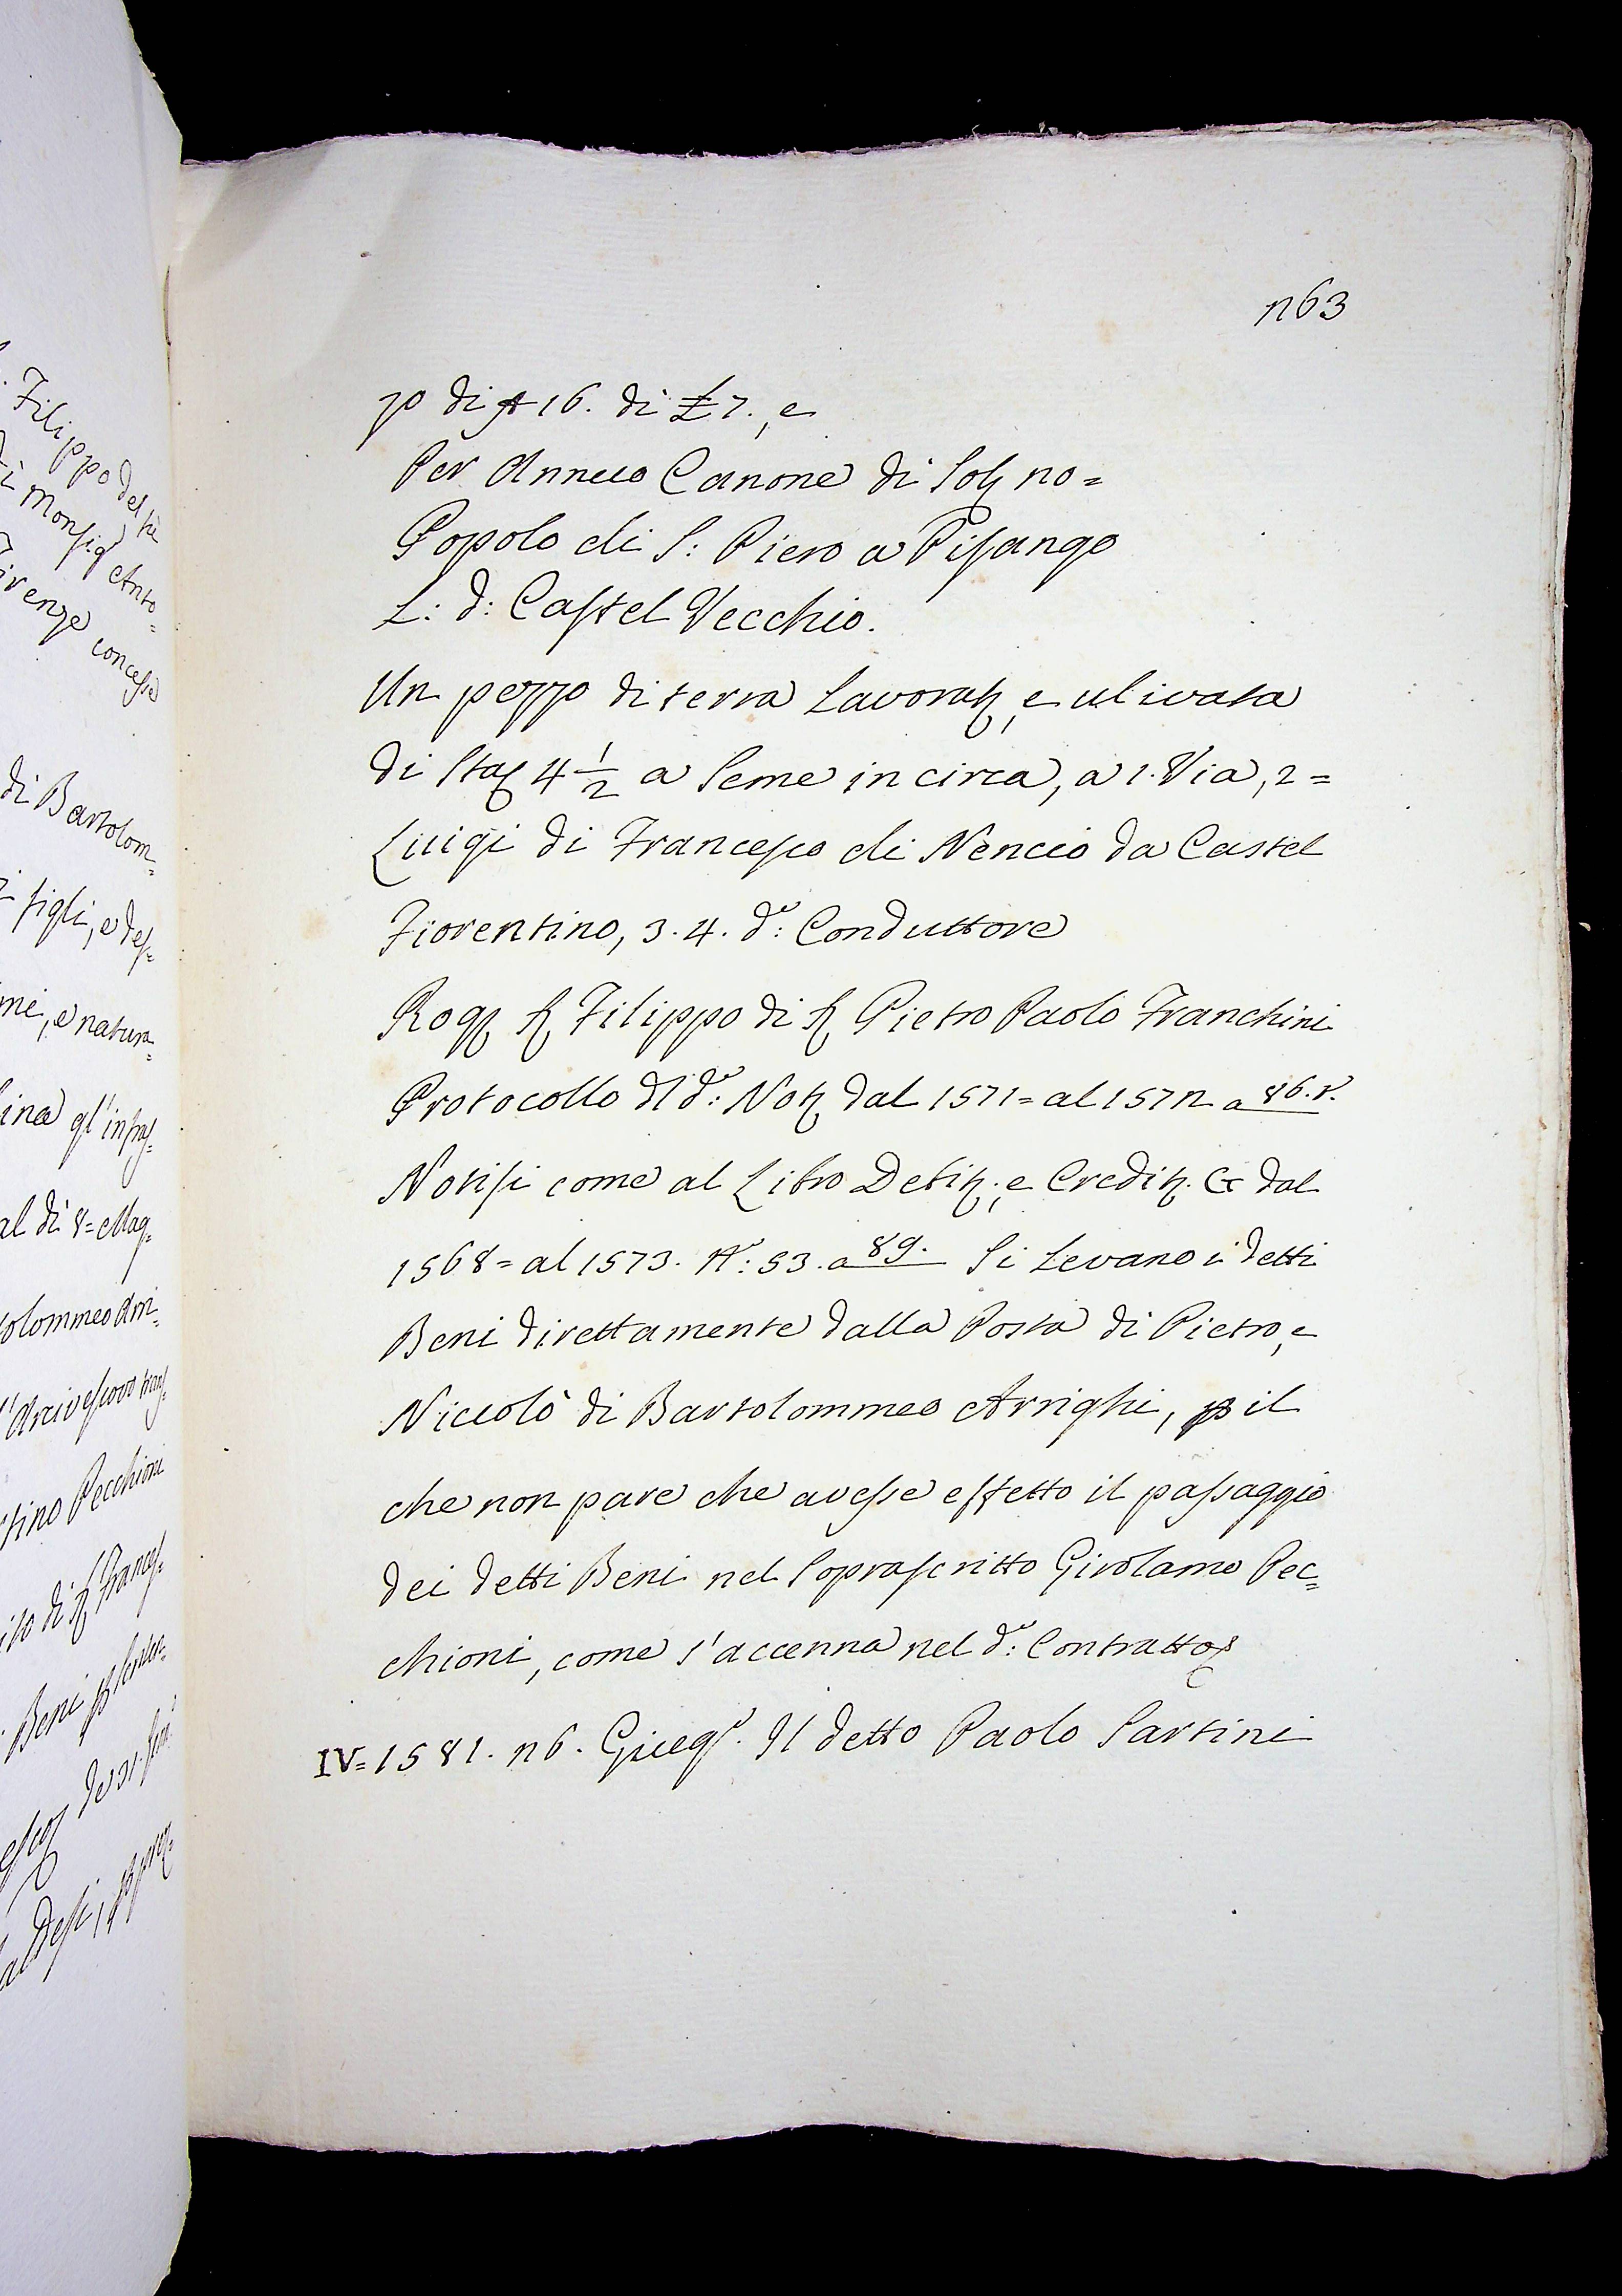 Filippo del
Monsig Anto=
irenze concesse
di Bartolom=
figli, e des=
mi, e natura=
ina gl'infras=
al dì 8= Mag.
olommeo Arri=
l'Arcivescovo
tino Pecchioni
Beni
263
zo di 16. di £ 7., e
Per Annuo Canone di Soł 20=
Popolo di S: Piero a Pisango
L: d: Castel Vecchio.
Un pezzo di terra Lavorat, e ulivata
di Sta 4 1/2 a Seme in circa, a 1. Via, 2=
Luigi di Francesco di Nencio da Castel
Fiorentino, 3. 4. dº: Conduttore
Rog S Filippo di S Pietro Paolo Franchini
Protocollo dl dº: Not dal 1571= al 1572 a 86. r.
Notisi come al Libro Debit:, e Credit. G dal
1568= al 1573. Nº: 53. a 89. Si Levano i detti
Beni direttamente dalla Posta di Pietro, e
Niccolò di Bartolommeo Arrighi, p il
che non pare che avesse effetto il passaggio
dei detti Beni nel Soprascritto Girolamo Pec=
chioni, come s'accenna nel dº: Contratto
IV= 1581. 26. Giugº. Il detto Paolo Sartini